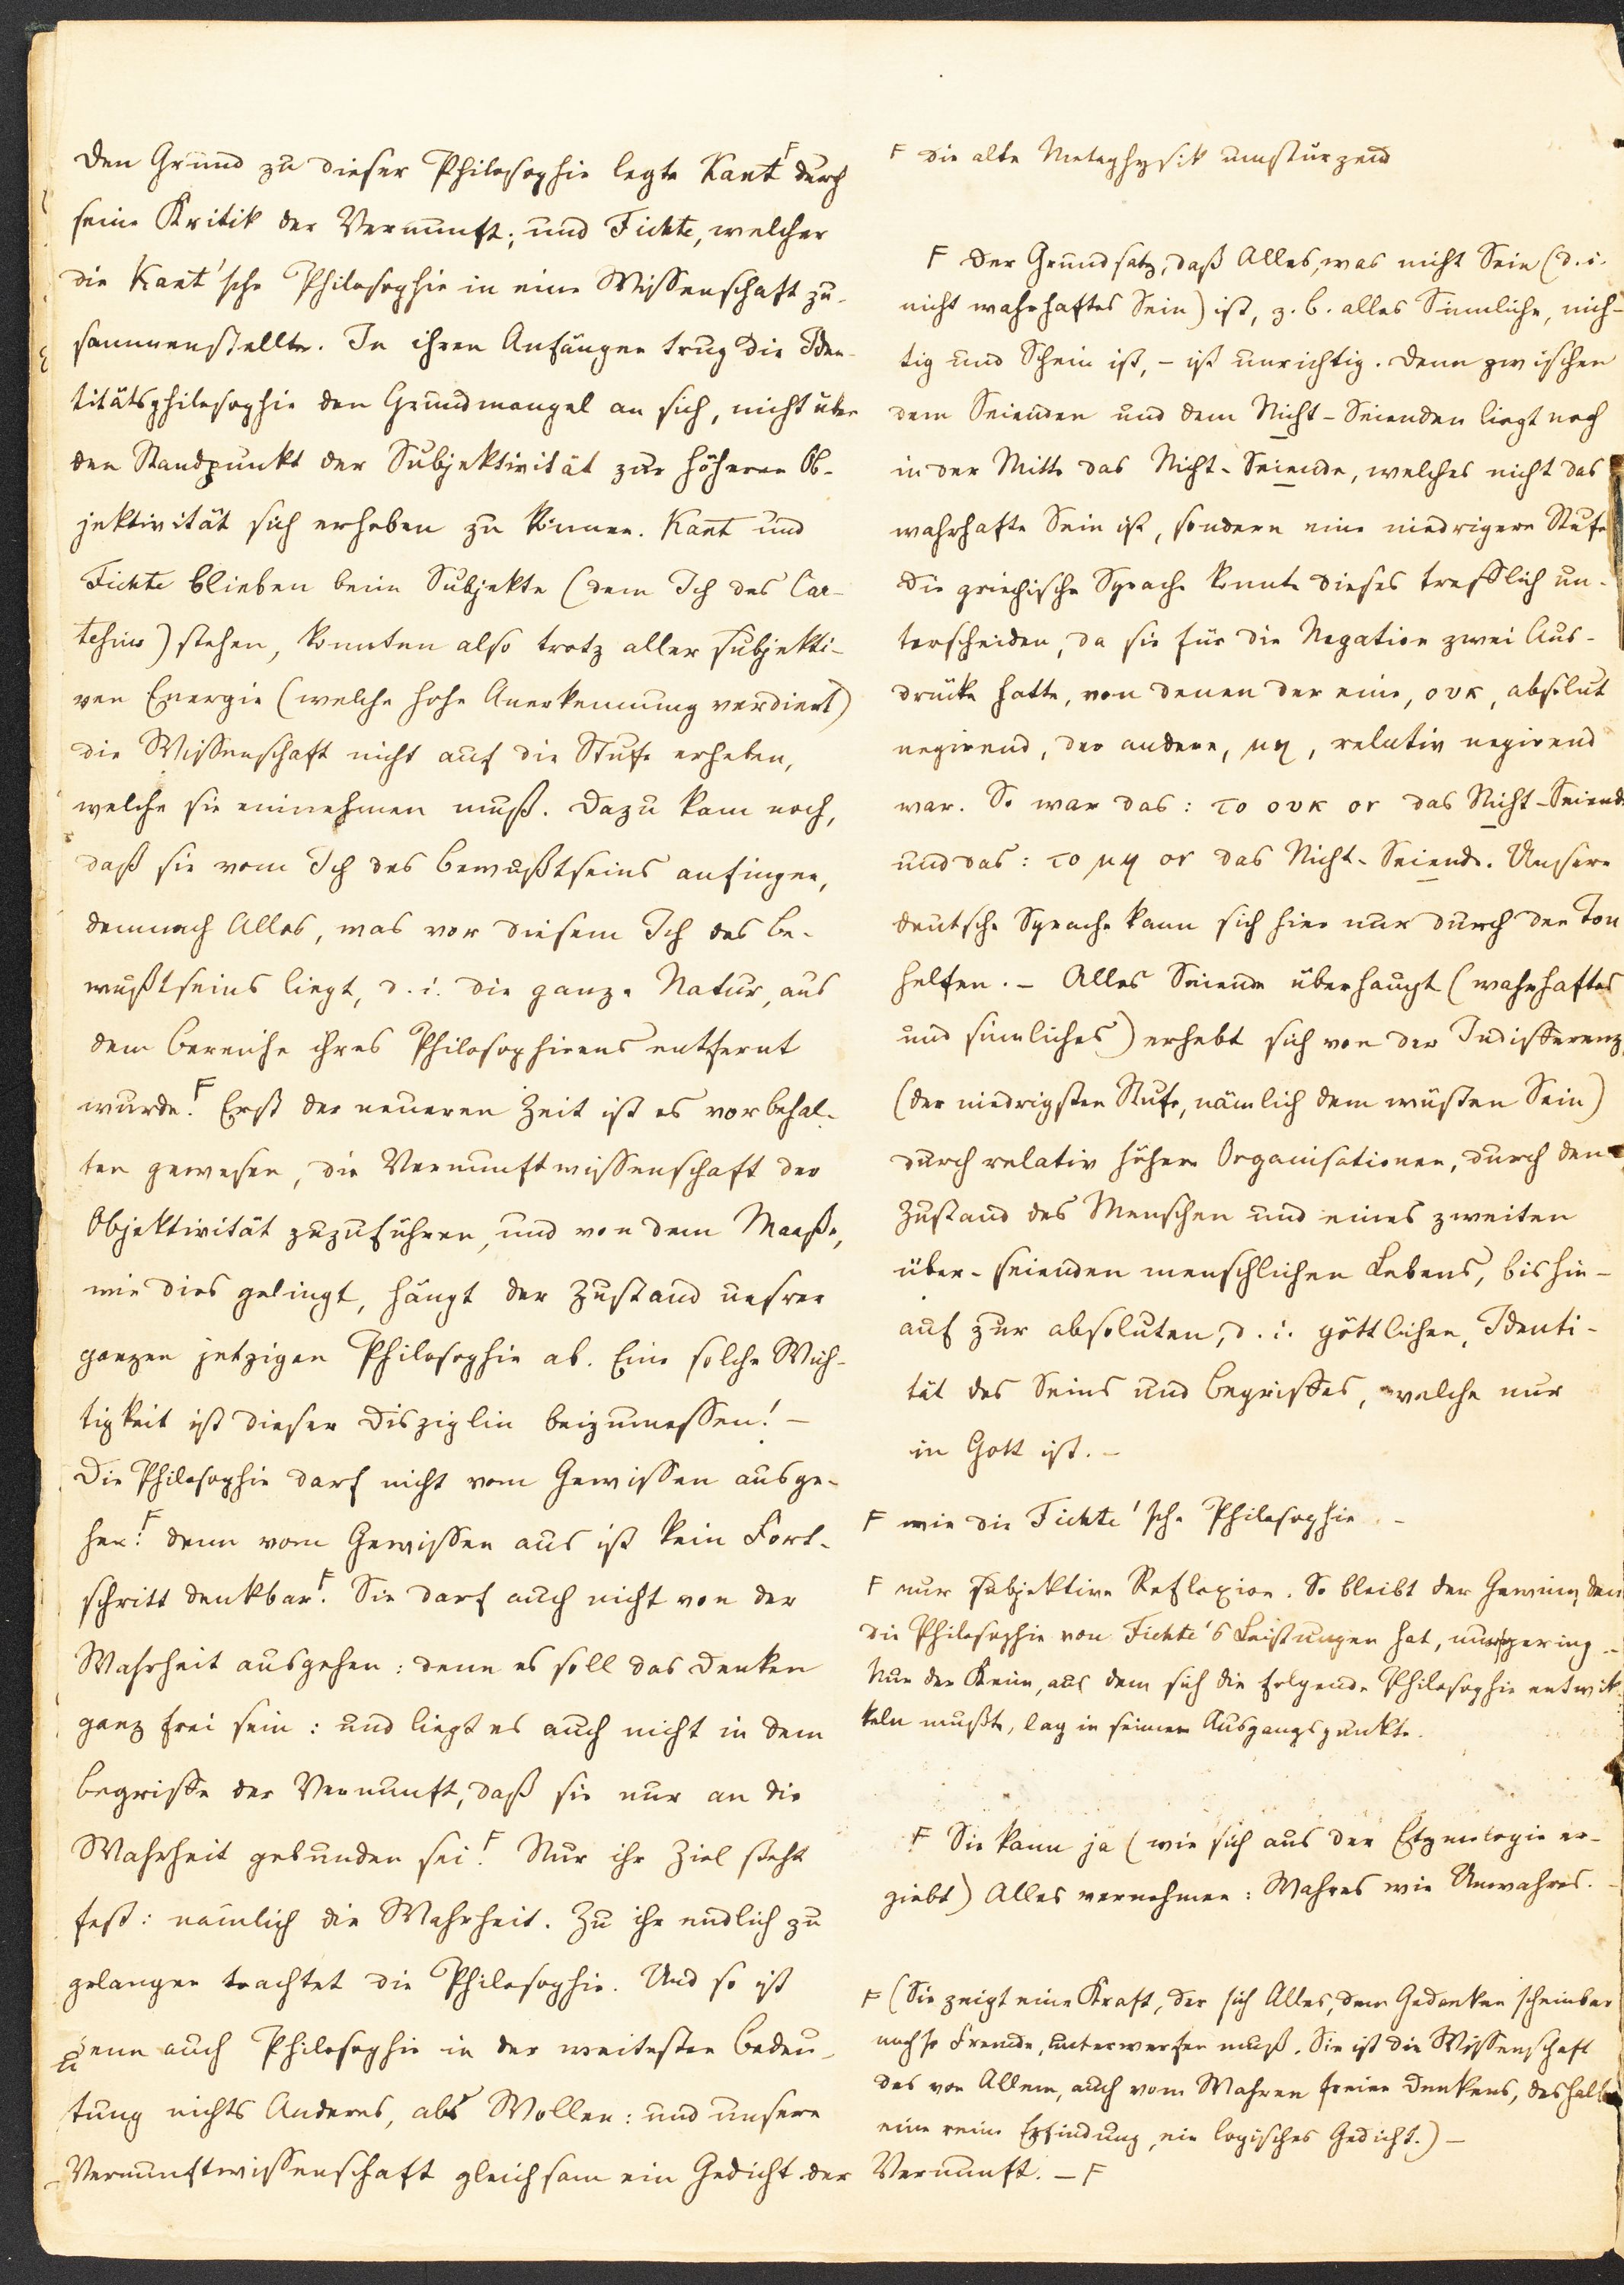 Den Grund zu dieser Philosophie legte Kant F durch
seine Kritik der Vernunft; und Fichte, welcher
die Kant'sche Philosophie in eine Wissenschaft zu-
sammenstellte. In ihren Anfängen trug die Iden-
titätsphilosophie den Grundmangel an sich, nicht über
den Standpunkt der Subjektivität zur höheren Ob-
jektivität sich erheben zu können. Kant und
Fichte blieben beim Subjekte (dem Ich des Car-
tesius) stehen, konnten also trotz aller subjekti-
ven Energie (welche hohe Anerkennung verdient)
die Wissenschaft nicht auf die Stufe erheben,
welche sie einnehmen muß. Dazu kam noch,
daß sie vom Ich des Bewußtseins anfingen,
demnach Alles, was vor diesem Ich des Be-
wußtseins liegt, d. i. die ganze Natur, aus
dem Bereiche ihres Philosophirens entfernt
wurde. F Erst der neueren Zeit ist es vorbehal-
ten gewesen, die Vernunftwissenschaft der
Objektivität zuzuführen, und von dem Maaße,
wie dies gelingt, hängt der Zustand unsrer
ganzen jetzigen Philosophie ab. Eine solche Wich-
tigkeit ist dieser Disziplin beizumessen! –
Die Philosophie darf nicht vom Gewissen ausge-
hen: F denn vom Gewissen aus ist kein Fort-
schritt denkbar. F Sie darf auch nicht von der
Wahrheit ausgehen: denn es soll das Denken
ganz frei sein: und liegt es auch nicht in dem
Begriffe der Vernunft, daß sie nur an die
Wahrheit gebunden sei. F Nur ihr Ziel steht
fest: nämlich die Wahrheit. Zu ihr endlich zu
gelangen trachtet die Philosophie. Und so ist
denn auch Philosophie in der weitesten Bedeu-
tung nichts Anderes, als Wollen: und unsere
Vernunftwissenschaft gleichsam ein Gedicht der
F die alte Metaphysik umstürzend
F Der Grundsatz, daß Alles, was nicht Sein (d. i.
nicht wahrhaftes Sein) ist, z. B. alles Sinnliche, nich-
tig und Schein ist, – ist unrichtig. Denn zwischen
dem Seienden und dem Nicht-Seienden liegt noch
in der Mitte das Nicht-Seiende, welches nicht das
wahrhafte Sein ist, sondern eine niedrigere Stufe
Die griechische Sprache konnte dieses trefflich un-
terscheiden, da sie für die Negation zwei Aus-
drücke hatte, von denen der eine, ουκ, absolut
negirend, der andere, μη, relativ negirend
war. So war das: το ουκ ον das Nicht-Seiende
und das: το μη ον das Nicht-Seiende. Unsere
deutsche Sprache kann sich hier nur durch den Ton
helfen. – Alles Seiende überhaupt (wahrhaftes
und sinnliches) erhebt sich von der Indifferenz
(der niedrigsten Stufe, nämlich dem wüsten Sein)
durch relativ höhere Organisationen, durch den
Zustand des Menschen und eines zweiten
über-seienden menschlichen Lebens, bis hin-
auf zur absoluten, d. i. göttlichen, Identi-
tät des Seins und Begriffes, welche nur
in Gott ist. –
F wie die Fichte'sche Philosophie –
F nur subjektive Reflexion. So bleibt der Gewinn, den
die Philosophie von Fichte's Leistungen hat, nur gering –
Nur der Keim, aus dem sich die folgende Philosophie entwik-
keln mußte, lag in seinem Ausgangspunkte.
F Sie kann ja (wie sich aus der Etymologie er-
giebt) Alles vernehmen: Wahres wie Unwahres. –
F (Sie zeigt eine Kraft, der sich Alles, dem Gedanken scheinbar
noch so Fremde, unterwerfen muß. Sie ist die Wissenschaft
des von Allem, auch vom Wahren freien Denkens, deshalb
eine reine Erfindung, ein logisches Gedicht.) –
Vernunft. – F